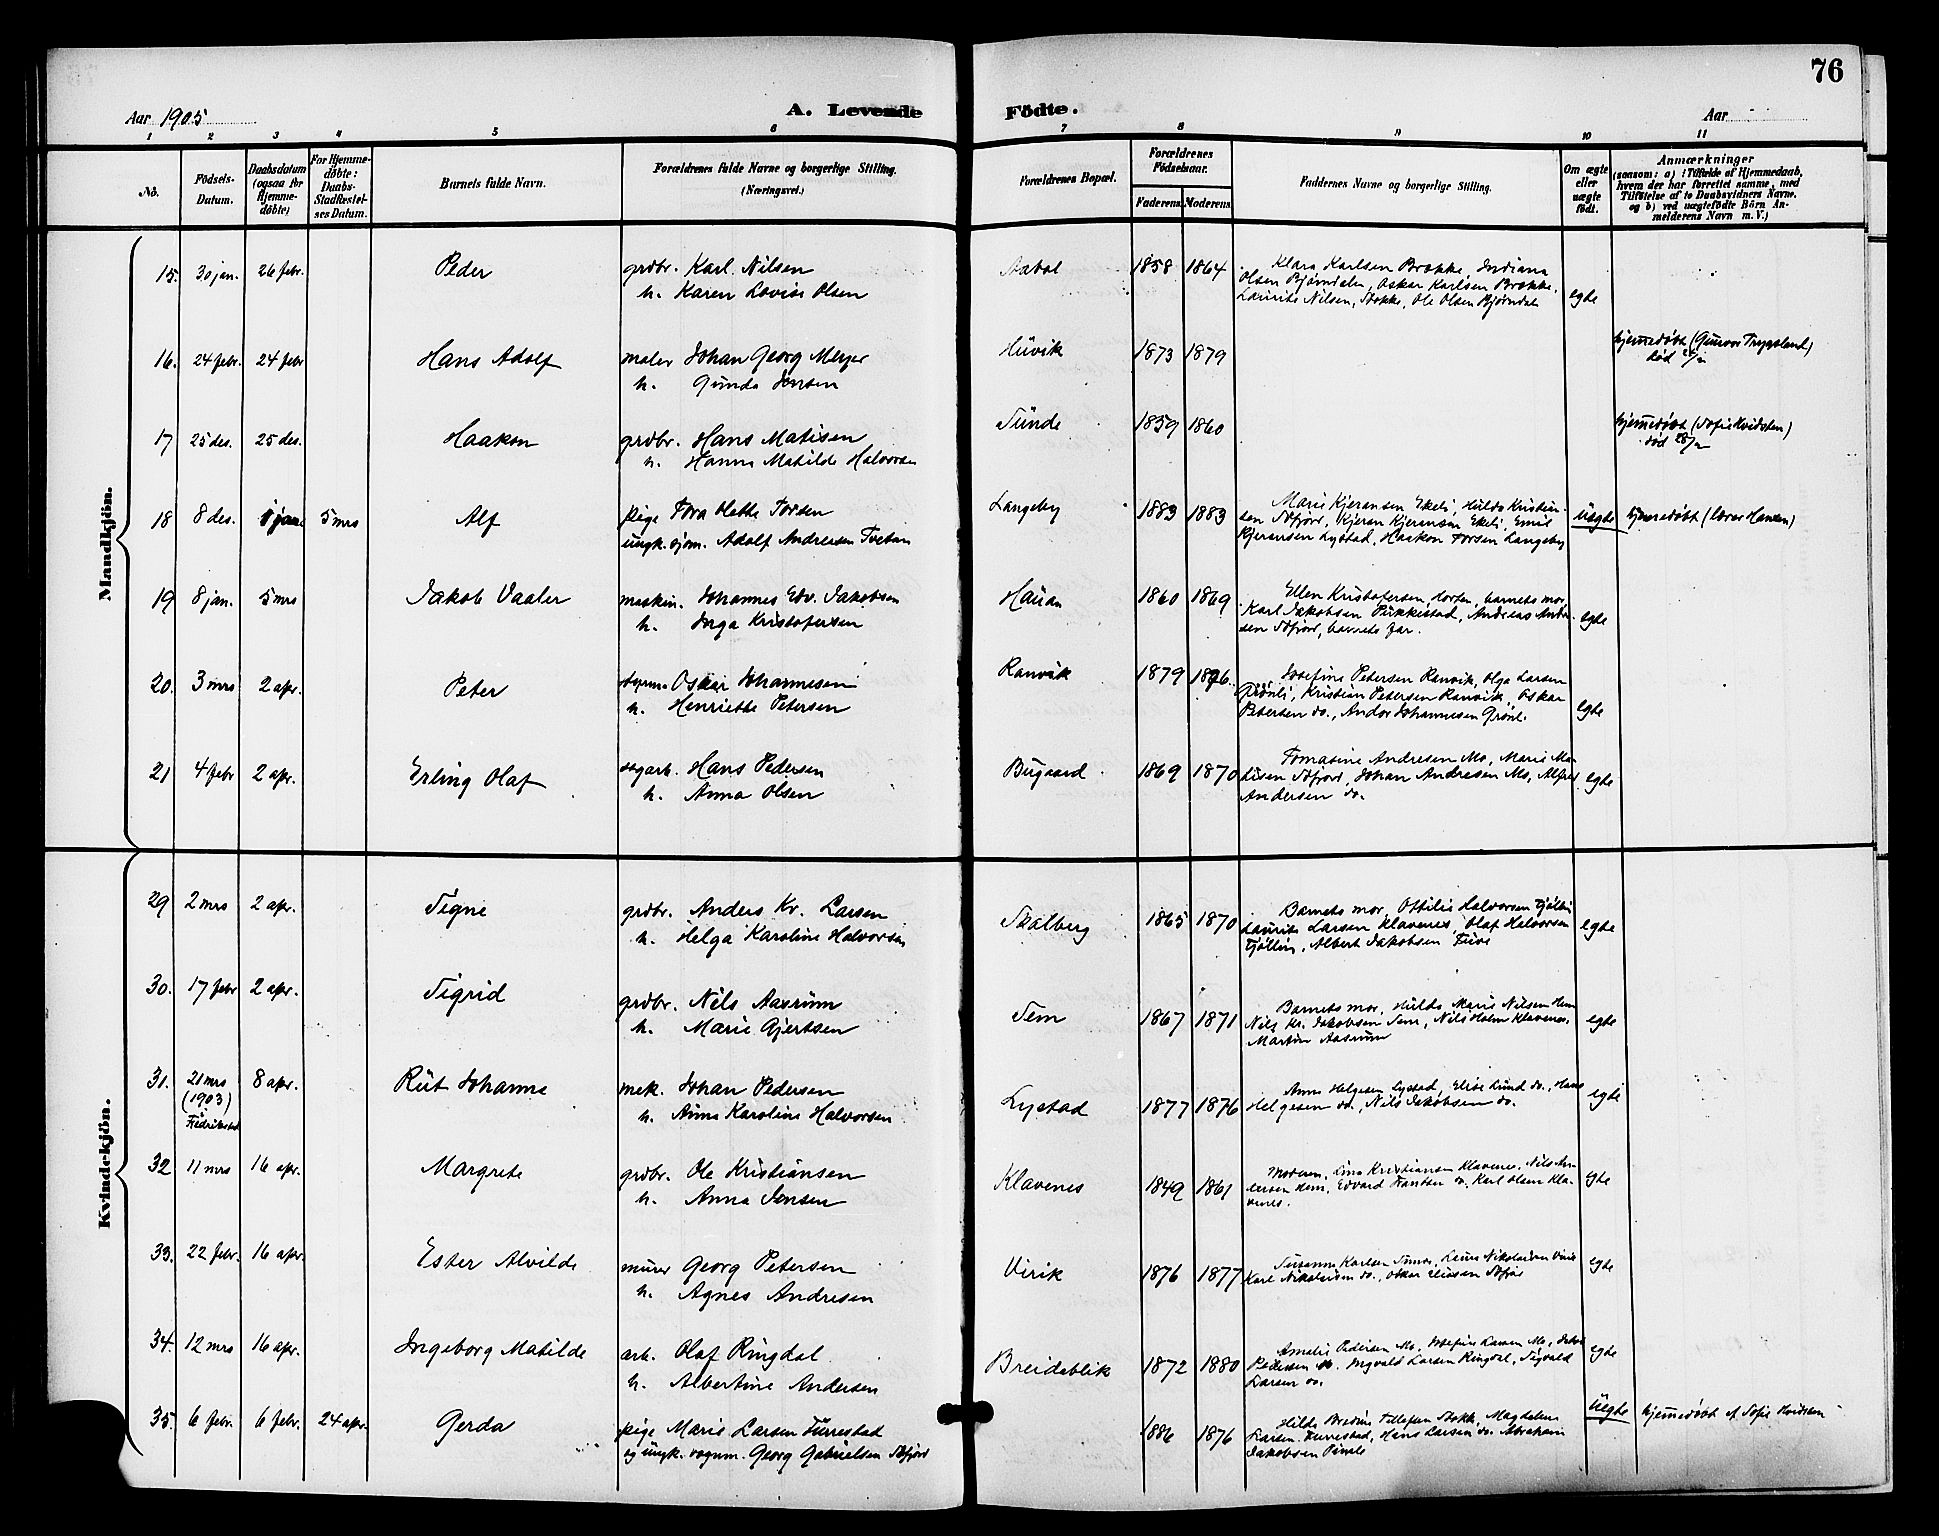 76
Aar 1905
A. Levende Födte.
Aar
1 2 3 4 5 6 7 8 9 10 11
No.
Födsels-
Datum.
Daabsdatum
(ogsaa for
Hjemme-
døbte)
For Hjemme-
døbte:
Daabs-
Stadfæstel-
ses Datum.
Barnets fulde Navn.
Forældrenes fulde Navne og borgerlige Stilling.
(Næringsvei.)
Forældrenes Bopæl.
Forældrenes
Födselsaar.
Faderens Moderens
Faddernes Navne og borgerlige Stilling.
Om ægte
eller
uægte
födt.
Anmærkninger
(saasom: a) i Tilfælde af Hjemmedaab,
hvem der har forrettet samme, med
Tilføielse af to Daabsvidners Navne.
og b) ved uægtefödte Börn An-
melderens Navn m. V.)
Mandkjön.
15. 30 jan. 26 febr. Peder
grdbr. Karl Nilsen
h. Karen Lovise Olsen
1858 1864
Klara Karlsen Brække, Indiana
Olsen Bjørndalen, Oskar Karlsen Brække,
Laurits Nilsen, Stokke, Ole Olsen Bjørndal
egte
16. 24 febr. 24 febr Hans Adolf
maler Johan Georg Meyer
h. Gunda Jensen
Huvik 1873 1879
hjemmedøbt (Gunvor Trypsland)
død
17 25 des. 25 des. Haakon
grdbr. Hans Matisen
h. Hanna Matilde Halvorsen
Sunde 1859 1860
hjemmedøbt (Sofie Hvidsten)
død
18 8 des. 1 jan 5 mrs Alf
pige Tora Mathe Torsen
ungk. sjøm. Adolf Andersen Tvetan
Langeby 1883 1883
Marie Kjeransen Ekeli, Hulda Kristian-
sen Sfjord, Kjeran Kjeransen Ekeli, Emil
Kjeransen Lystad, Haakon Torsen Langeby
uegte
hjemmedøbt (lærer Hansen)
19 8 jan. 5 mrs Jakob Vaaler
maskin. Johannes Edv. Jakobsen
h. Inga Kristofersen
Hauan 1860 1869
Ellen Kristofersen Horten, barnets mor,
Karl Jakobsen Pukkestad, Andreas Ander-
sen Sfjord, barnets far.
egte
20. 3 mrs 2 apr. Peter
styrm. Oskar Johannesen
h. Henriette Petersen
Ranvik 1879 1876
Josefine Petersen Ranvik, Olga Larsen
Grønli, Kristian Petersen Ranvik, Oskar
Petersen do., Andor Johannesen Grønl.
egte
21 4 febr 2 apr. Erling Olaf
Hans Pedersen
h. Anna Olsen
Bugaard 1869 1870
Tomasine Andresen Mo, Marie Ma-
tisen Sfjord, Johan Andresen Mo, Alfred
Andersen do.
egte
Kvindekjön.
29 2 mrs 2 apr. Signe
grdbr. Anders Kr. Larsen
h. Helga Karoline Halvorsen
Skalberg 1865 1870
Barnets mor, Ottilie Halvorsen Tjølling
Laurits Larsen Klavenes, Olaf Halvorsen
Tjølling, Albert Jakobsen Fuve
egte
30. 17 febr 2 apr. Sigrid
grdbr. Nils Aasrum
h. Marie Gjertsen
Sem 1867 1871
Barnets mor, Hulda Marie Nilsen Hem
Nils Kr. Jakobsen Sem, Nils Holm Klavenes,
Martin Aasrum
egte
31. 21 mrs 8 apr. Rut Johanna
(1903)
Fredrikstad
mek. Johan Pedersen
h. Anna Karoline Halvorsen
Lystad 1877 1876
Anna Helgesen Lystad, Elise Lund do., Hans
Helgesen do., Nils Jakobsen do.
egte
32 11 mrs 16 apr. Margrete
grdbr. Ole Kristiansen
h. Anna Jensen
Klavenes 1849 1861
Moderen, Lina Kristiansen Klavenes, Nils An-
dersen Hem, Edvard Frantsen do. Karl Olsen Kla-
venes.
egte
33. 22 febr. 16 apr. Ester Alvilde
murer Georg Petersen
h. Agnes Andresen
Virik 1876 1877
Susanna Karlsen Laura Nikolaisen Virik
Karl Nikolaisen do., Oskar Sfjord
egte
34. 12 mrs 16 apr. Ingeborg Matilde
arb. Olaf Ringdal
h. Albertine Andersen
Breidablik 1872 1880
Amalie Pedersen Mo, Josefine Larsen Mo,
Pedersen Mo. Ingvald Larsen Ringdal, Sigvald
Larsen do.
egte
35. 6 febr. 6 febr. 24 apr. Gerda
pige Marie Larsen Furrestad
og ungk. vognm. Georg Gabrielsen Sfjord
1886 1876
Hilda Bredine Tillefsen Stokk, Magdalene
Larsen Furrestad, Hans Larsen do. Abraham
Jakobsen
uegte
hjemmedøbt af Sofie Hvidsten